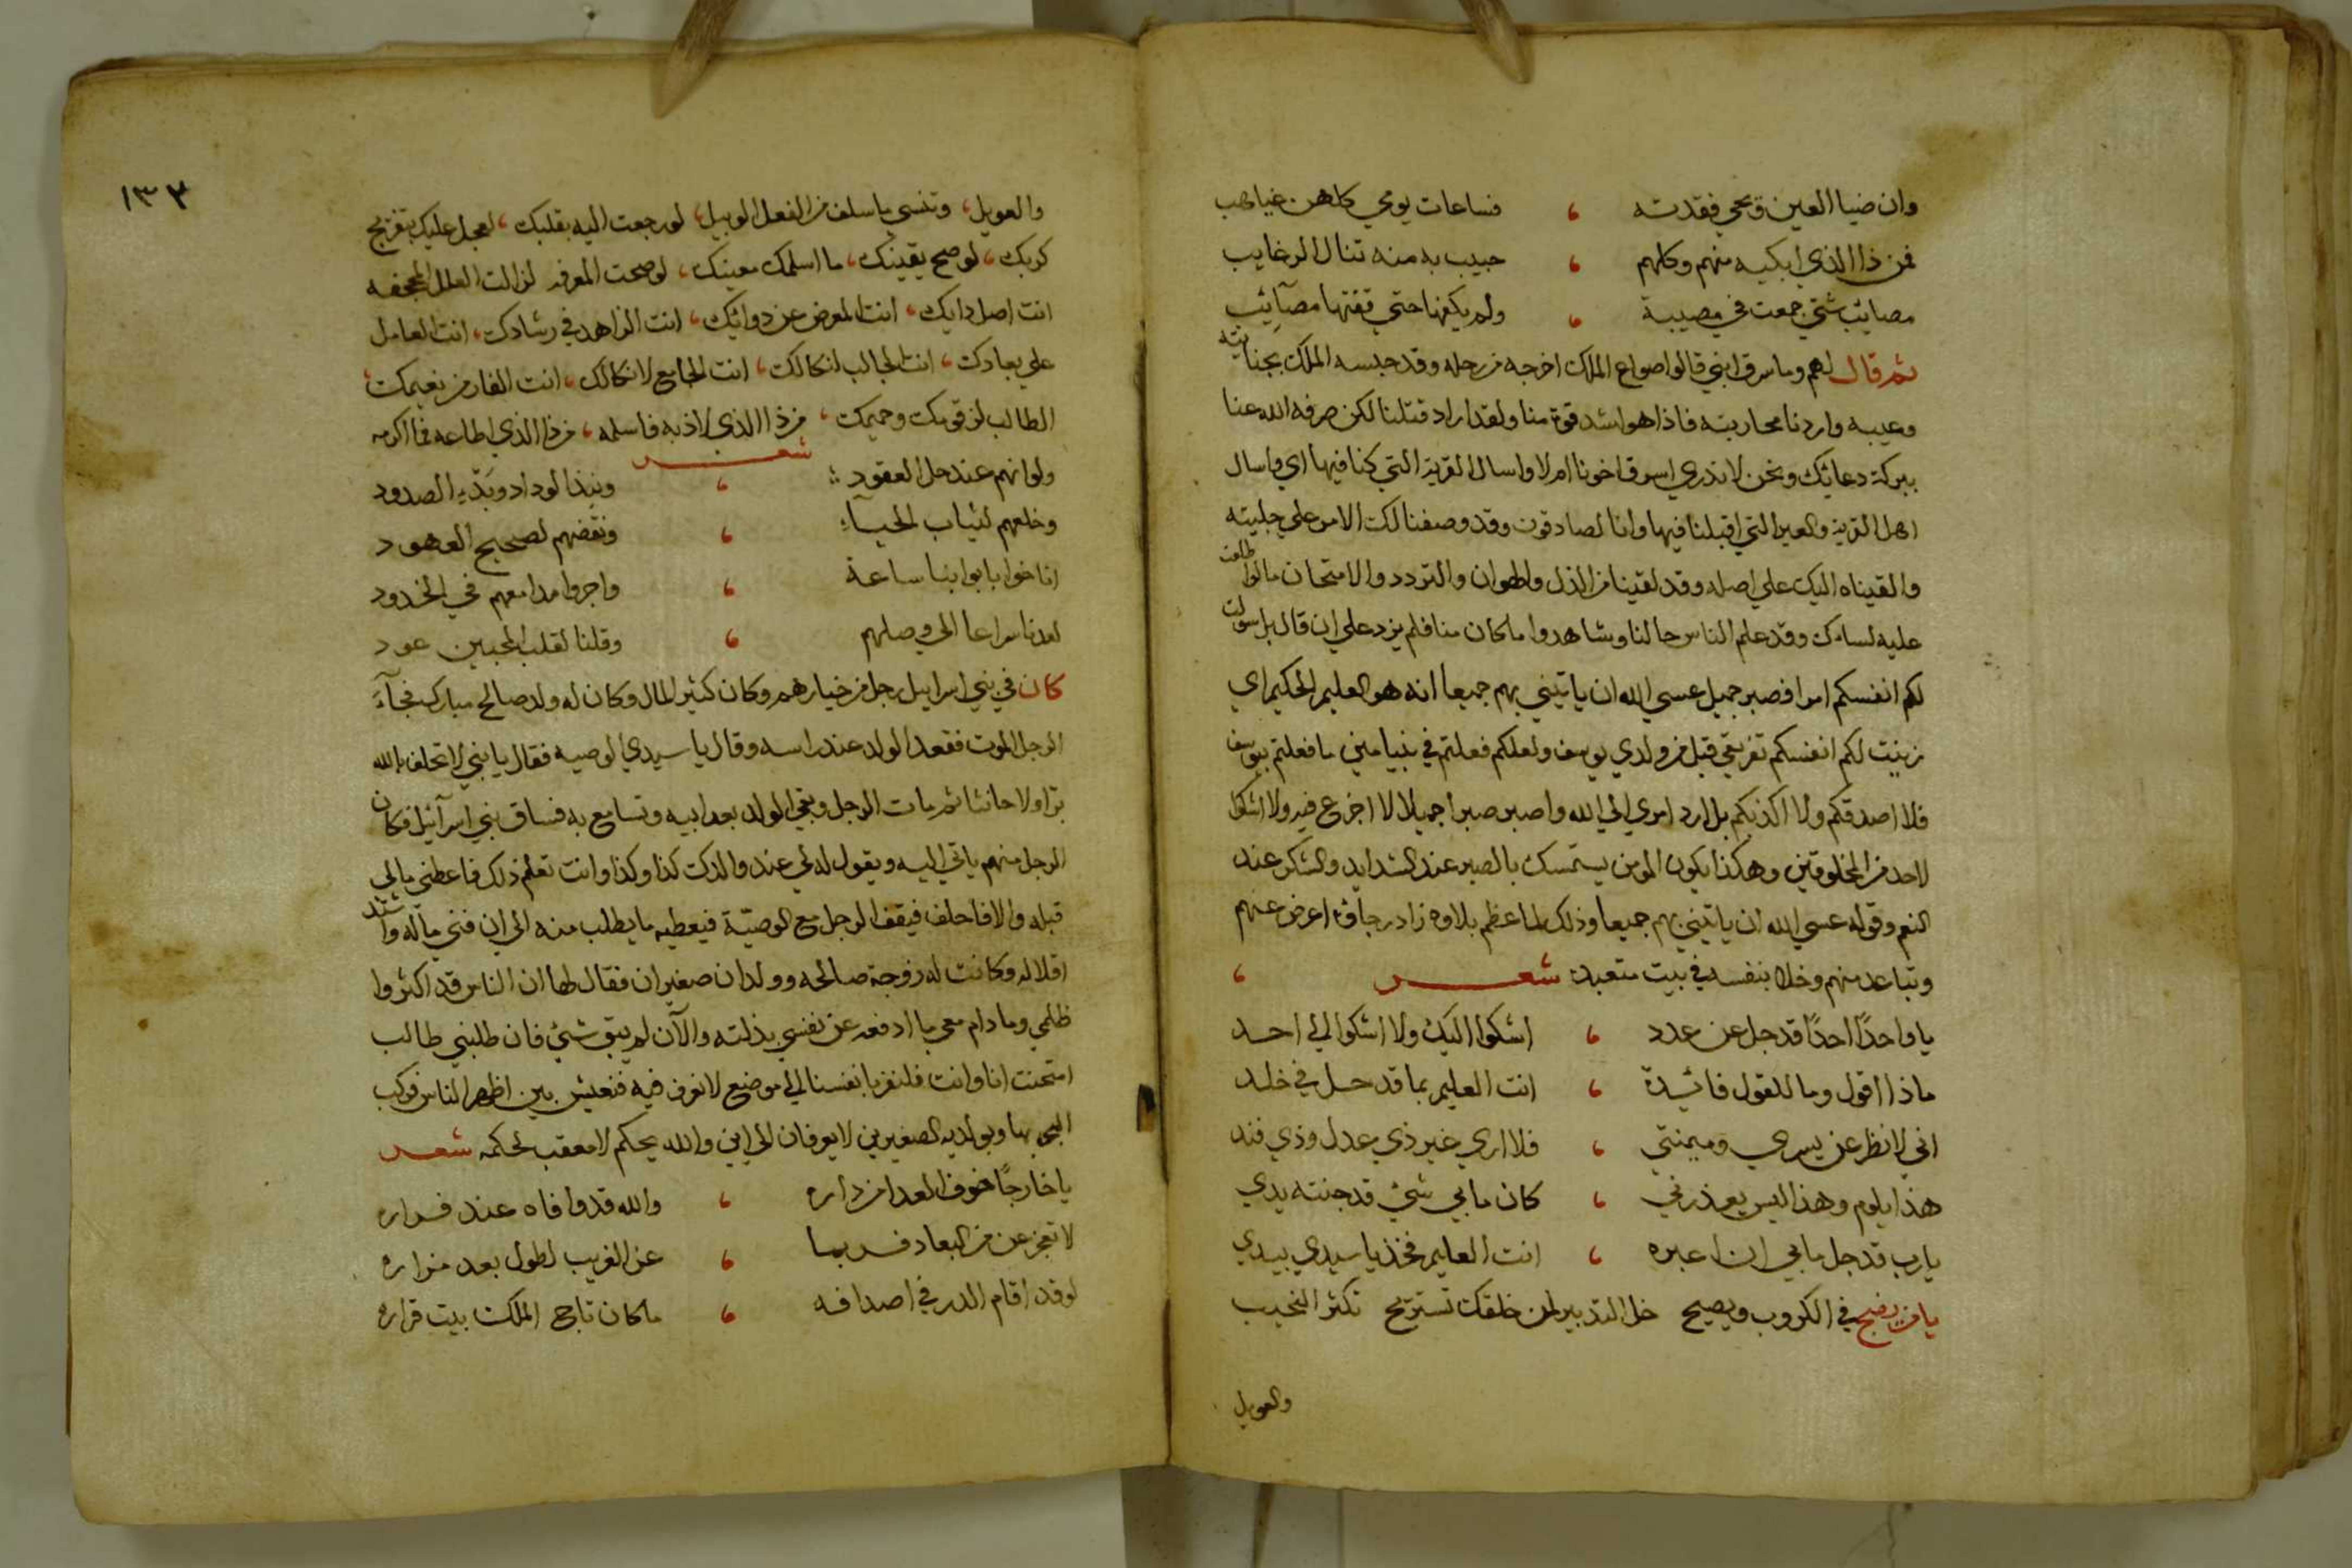 وان ضيا العين ويحي فقدته ، فساعات يومي كلهن غياهب
فمن ذا الذي ابكيه منهم وكلهم ، حبيب به منه تنال الرغايب
مصائب شتي جمعت في مصيبة ، ولم يكفها حتي قفتها مصآيب
ثم قال لهم وما سرق ابني قالوا صواع الملك اخرجه من رحله وقد حبسه الملك بجنايته
وعيبه واردنا محاربته فاذا هو اشد قوة منا ولقد اراد قتلنا لكن صرفه الله عنا
ببركة دعائك ونحن لا ندري اسرق اخونا ام لا واسال القرية التي كنا فيها اي واسال
اهل القرية والعير التي اقبلنا فيها وانا لصادقون وقد وصفنا لك الامر علي جليته
والقيناه اليك علي اصله وقد لقينا من الذل والهوان والتردد والامتحان ما لو
عليه لساك وقد علم الناس حالنا وشاهدوا ما كان منا فلم يزد علي ان قال بل سولت
لكم انفسكم امرا فصبر جميل عسي الله ان ياتيني بهم جميعا انه هو العليم الحكيم اي
زينت لكم انفسكم تفريقي قبل من ولدي يوسف ولعلكم فعلتم في بنيامين ما فعلتم بيوسف
فلا اصدقكم ولا اكذبكم بل ارد امري الي الله واصبر صبرا جميلا لا اجزع فيه ولا اشكوا
لاحد من المخلوقين وهكذا يكون المومن يستمسك بالصبر عند الشدايد والشكر عند
النعم وقوله عسي الله ان ياتيني بهم جميعا وذلك لما عظم بلاوه زاد رجاوه اعرض عنهم
وتباعد منهم وخلا بنفسه في بيت متعبد شعر ،
يا واحدًا احدًا قد جل عن عدد ، اشكوا اليك ولا اشكوا الي احد
ماذا اقول وما للقول فائدة ، انت العليم بما قد حل في خلد
اني لانظر عن يسري وميمنتي ، فلا اري غير ذي عدل وذي فند
هذا يلوم وهذا ليس يعذرني ، كان ما بي شئ قد جنته يدي
يا رب قد جل ما بي ان اعبره ، انت العليم فخذ يا سيدي بيدي
يا من يضج في الكروب ويصيح خل التدبير لمن خلقك تستريح تكثر النحيب
والعويل
١٣٣
والعويل ، وتنسي ما سلف من الفعل الوبيل ، لو رجعت اليه بقلبك ، لعجل عليك بتفريج
كربك ، لو صح يقينك ، ما اسلمك معينك ، لو صحت المعرفه لزالت العلل المجحفه
انت اصل دايك ، انت المعرض عن دوائك ، انت الزاهد في رشادك ، انت العامل
علي بعادك ، انت الجالب لنكالك ، انت الجامع لانكالك ، انت الفار من نعيمك ،
الطالب لزقومك وحميمك ، من ذا الذي لاذ به فاسلمه ، من ذا الذي اطاعه فما اكرمه
شعر
ولو انهم عند حل العقود ، ونبذ الوداد وبَدْءِ الصدود
وخلعهم لثياب الحيآء ، ونقضهم لصحيح العهود
اناخوا بابوابنا ساعة ، واجروا مدامعهم في الخدود
لعدنا سراعا الي وصلهم ، وقلنا لقلب المحبين عود
كان في بني اسرايل رجل من خيارهم وكان كثير المال وكان له ولد صالح مبارك فجآءَ
الرجل الموت فقعد الولد عند راسه وقال يا سيدي الوصيه فقال يا بني لا تحلف بالله
برا ولا حانثا ثم مات الرجل وبقي الولد بعد ابيه وتسامع به فساق بني اسرآئيل فكان
الرجل منهم ياتي اليه ويقول له لي عند والدك كذا وكذا وانت تعلم ذلك فاعطني مالي
قبله والا فاحلف فيقف الرجل مع الوصيّة فيعطيه ما يطلب منه الي ان فني ماله واشتد
اقلاله وكانت له زوجة صالحه وولدان صغيران فقال لها ان الناس قد اكثروا
ظلمي وما دام معي ما ادفعه عن نفسي بذلته والآن لم يبق شئ فان طلبني طالب
امتحنت انا وانت فلنفر بانفسنا الي موضع لا نعرف فيه فنعيش بين اظهر الناس فركب
البحر بها وبولديه الصغيرين لا يعرفان الي اين والله يحكم لا معقب لحكمه شعر
يا خارجًا خوف العدا من داره ، والله قد وافاه عند فراره
لا تعجزعن من البعاد فربما ، عز الغريب لطول بعد مزاره
لو قد اقام الدر في اصدافه ، ما كان تاج الملك بيت قراره